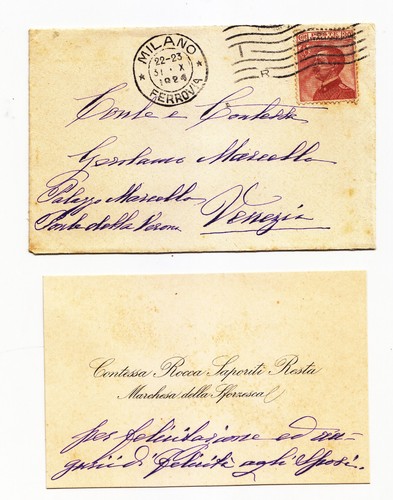 MILANO
22-23
31 · X
1924
FERROVIA
R
Conte e Contessa
Gerolamo Marcello
Palazzo Marcello
Ponte della Verona Venezia
Contessa Rocca Saporiti Resta
Marchesa della Sforzesca
per felicitazione ed au-
guri di felicità agli Sposi.